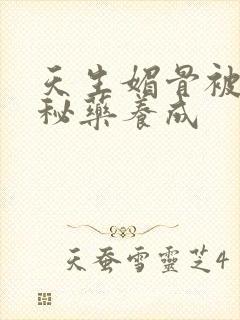 天生媚骨被
秘藥養成
天蚕雪靈芝4